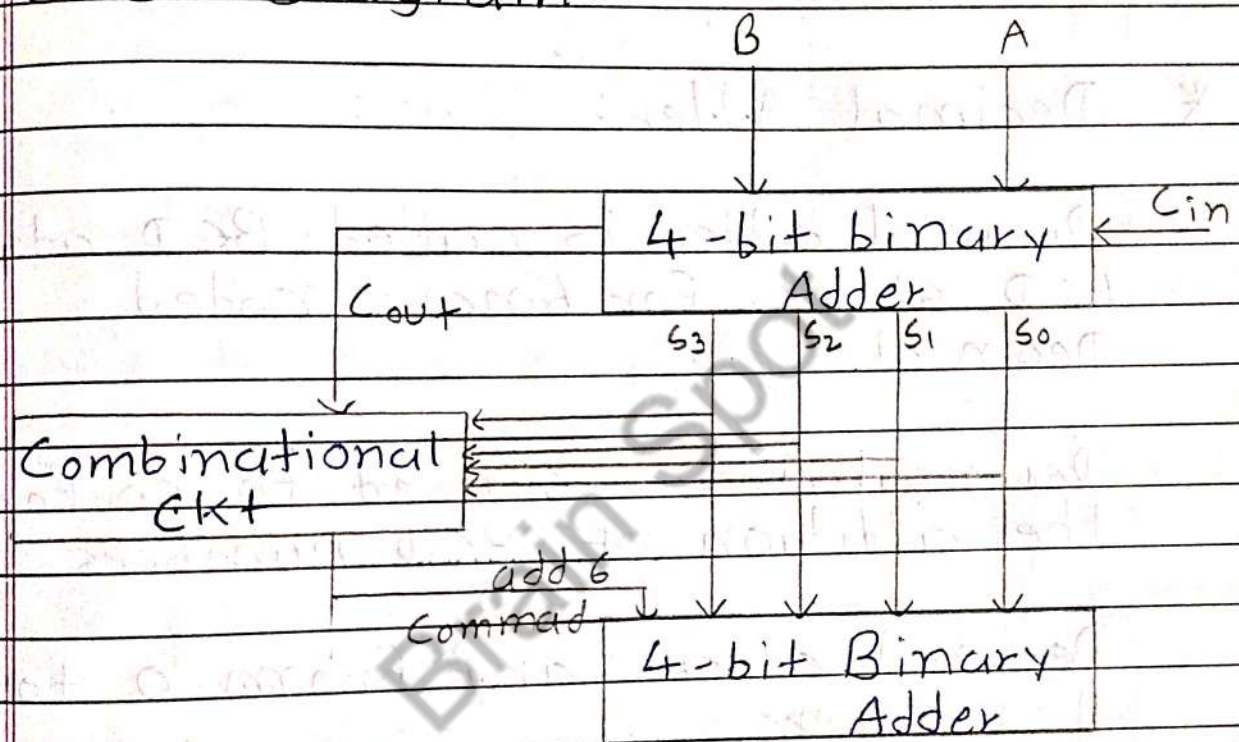 B A
4-bit binary Cin
Adder
Cout
S3 S2 S1 S0
Combinational
Ckt
add 6
Commad
4-bit Binary
Adder
Brain Spot